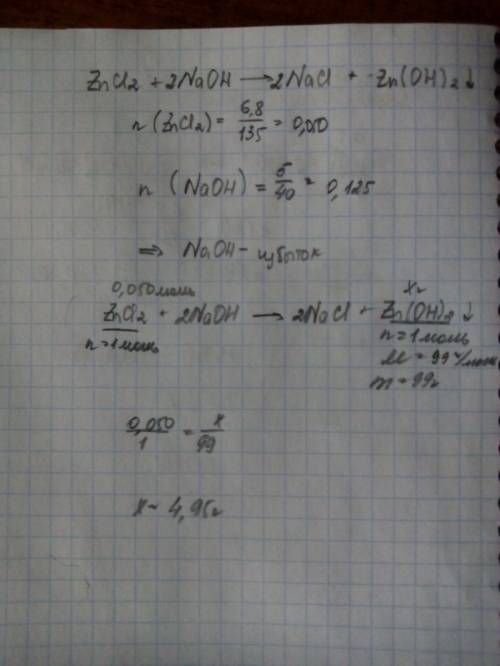 ZnCl2 + 2NaOH → 2NaCl + Zn(OH)2↓
n (ZnCl2) = 6,8/135 = 0,050
n (NaOH) = 5/40 = 0,125
⇒ NaOH - избыток
0,050 моль x г
ZnCl2 + 2NaOH → 2NaCl + Zn(OH)2↓
n = 1 моль n = 1 моль
M = 99 г/моль
m = 99 г
0,050/1 = x/99
x = 4,95 г